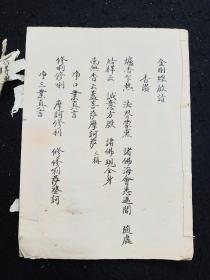 金剛經啟請
香讚
爐香乍熱 法界蒙熏 諸佛海會悉遙聞 隨處
結祥雲 誠意方殷 諸佛現全身
南無香雲蓋菩薩摩訶薩 三稱
净口業真言
修利修利 摩訶修利 修修利薩婆訶
净三業真言